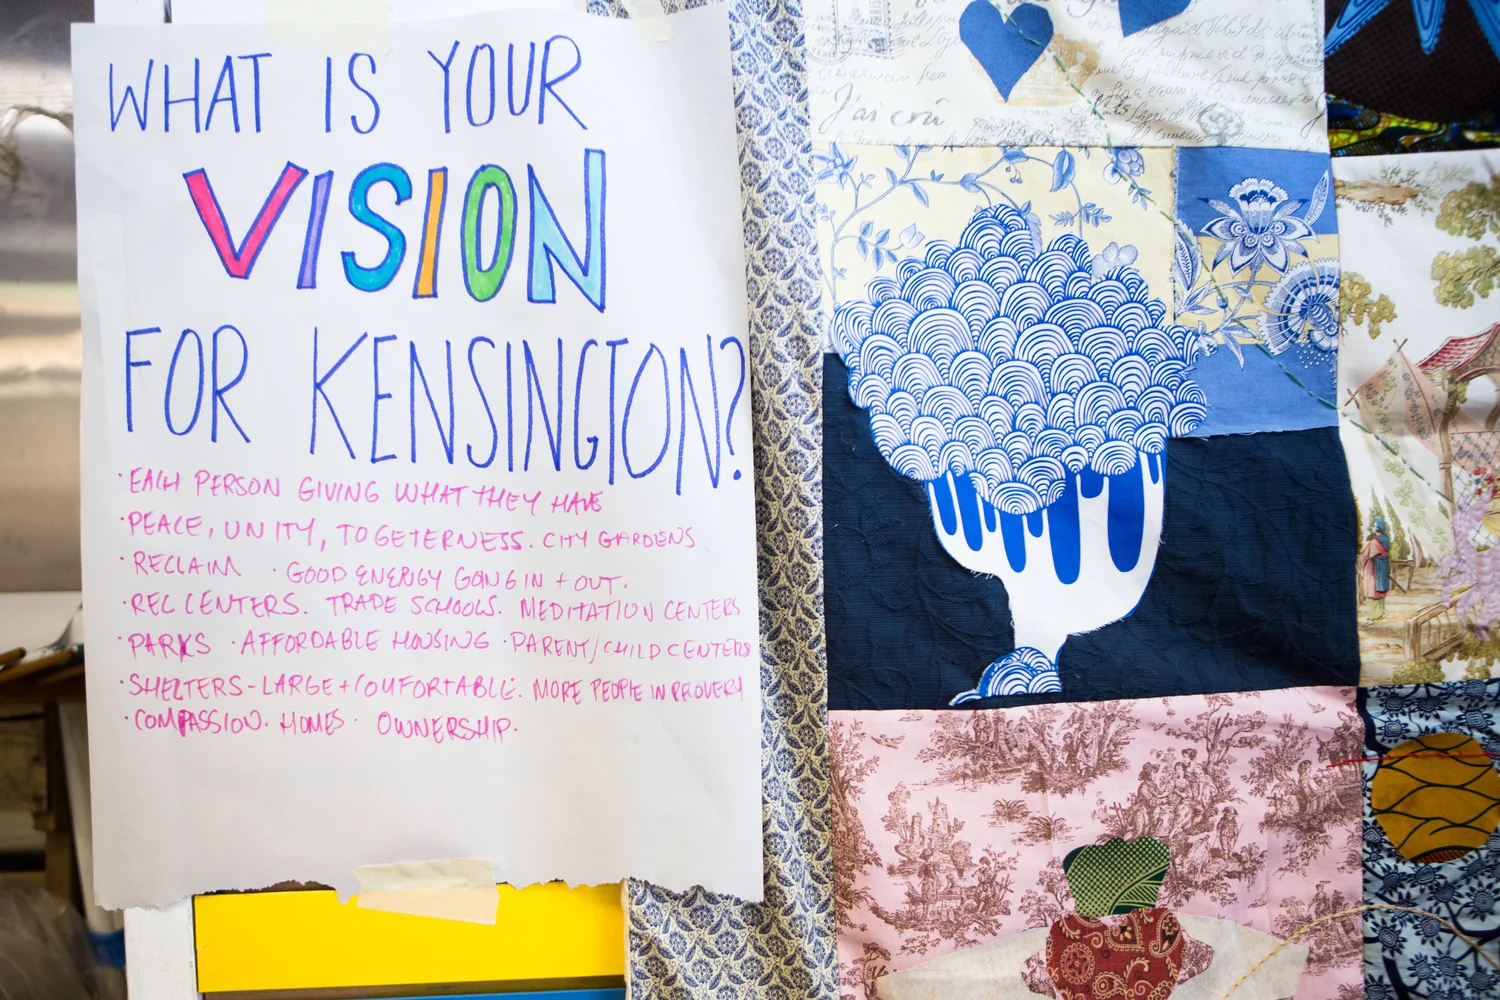 WHAT IS YOUR
VISION
FOR KENSINGTON?
· EACH PERSON GIVING WHAT THEY HAVE
· PEACE, UNITY, TOGETERNESS. CITY GARDENS
· RECLAIM · GOOD ENERGY GOING IN + OUT.
· REC CENTERS. TRADE SCHOOLS. MEDITATION CENTERS
· PARKS · AFFORDABLE HOUSING · PARENT/CHILD CENTERS
· SHELTERS - LARGE + COMFORTABLE. MORE PEOPLE IN RECOVERY
· COMPASSION. HOMES · OWNERSHIP.
J'ai
PARIS